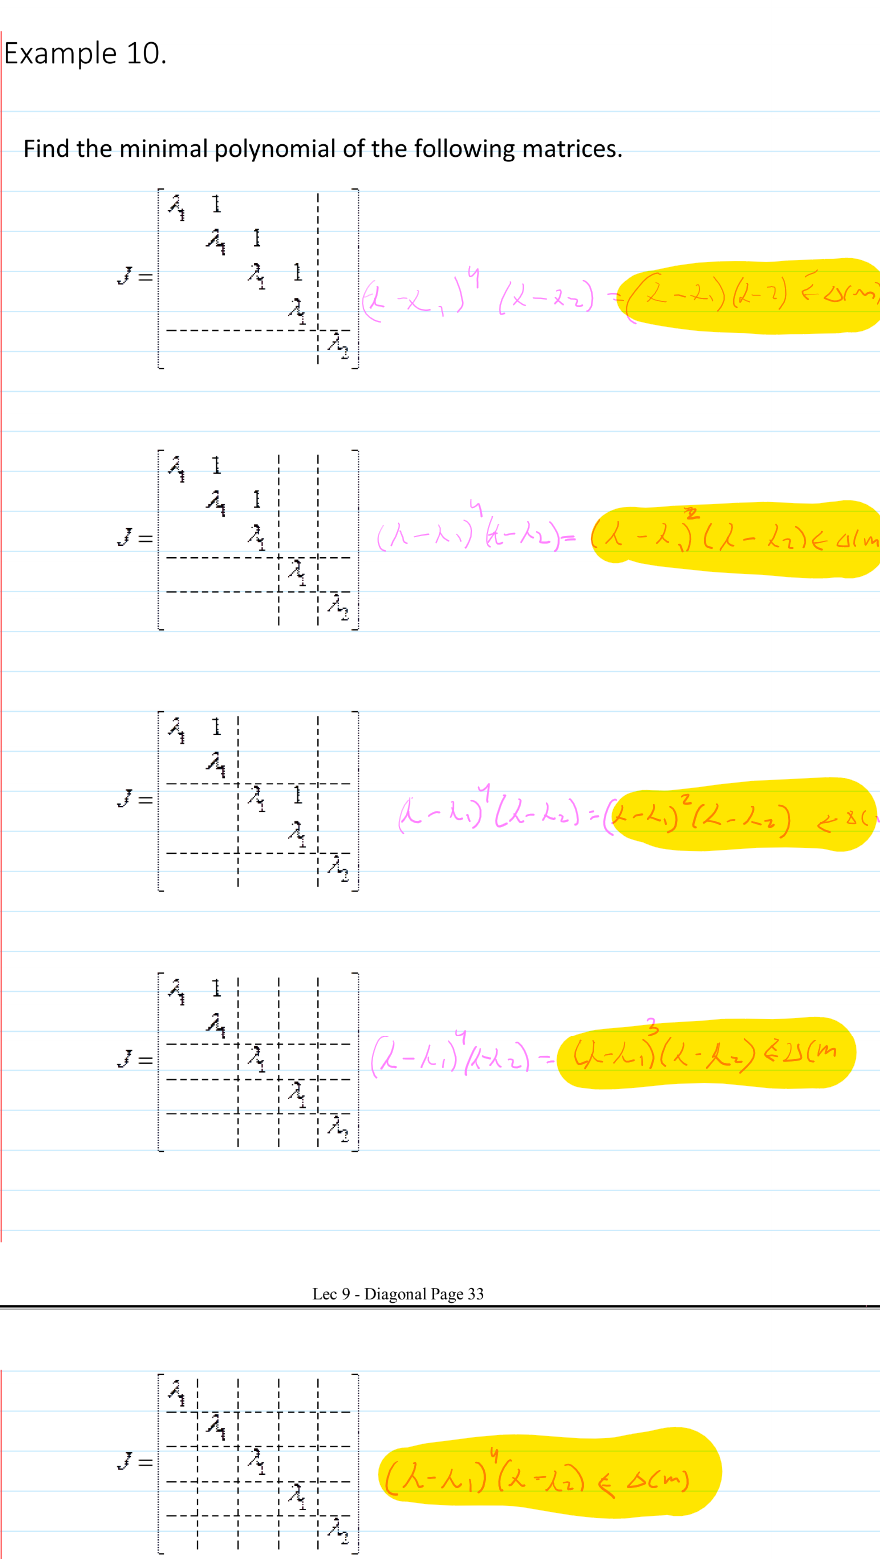 Example 10.
Find the minimal polynomial of the following matrices.
λ₁ 1
λ₁ 1
J = λ₁ 1 (λ-λ₁)⁴ (λ-λ₂) = (λ-λ₁)(λ-2) ← Δ(m)
λ₁
λ₂
λ₁ 1
λ₁ 1
J = λ₁ (λ-λ₁)⁴(λ-λ₂) = (λ-λ₁)²(λ-λ₂) ← Δ(m
λ₁
λ₂
λ₁ 1
λ₁
J = λ₁ 1 (λ-λ₁)⁴(λ-λ₂) = (λ-λ₁)²(λ-λ₂) ← Δ(
λ₁
λ₂
λ₁ 1
λ₁
J = λ₁ (λ-λ₁)⁴(λ-λ₂) = (λ-λ₁)³(λ-λ₂) ← Δ(m
λ₁
λ₂
Lec 9 - Diagonal Page 33
λ₁
λ₁
J = λ₁ (λ-λ₁)⁴(λ-λ₂) ← Δ(m)
λ₁
λ₂